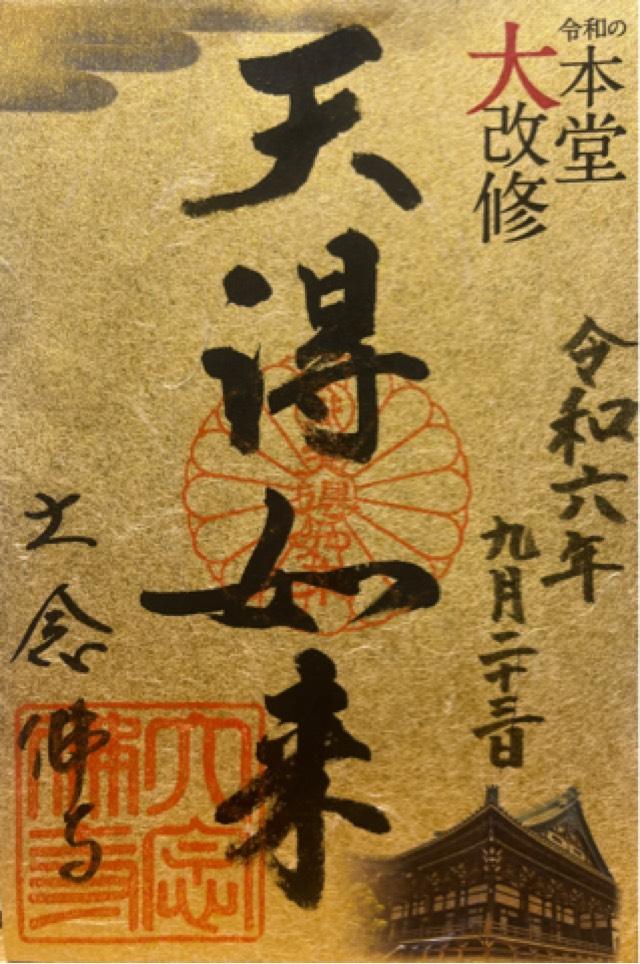 令和の
本堂
大改修
令和六年
九月二十三日
天得如来
大念佛寺
大念
佛寺